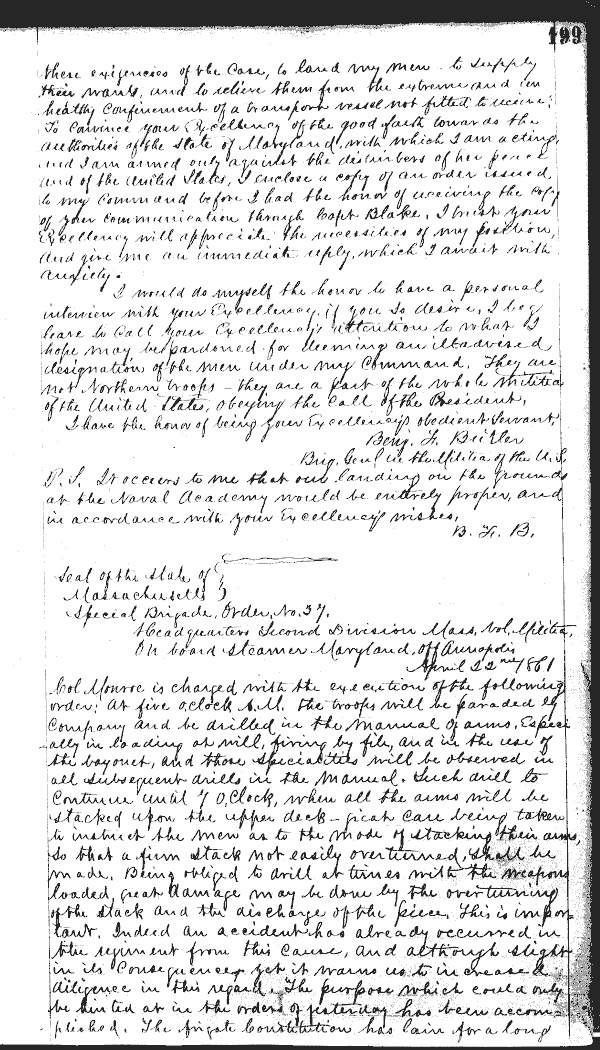 199
these exigencies of the case, to land my men to supply
their wants, and to relieve them from the extreme and un
healthy confinement of a transport vessel not fitted to receive;
To convince your Excellency of the good faith towards the
authorities of the state of Maryland, with which I am acting,
and I am armed only against the disturbers of her peace
and of the United States, I enclose a copy of an order issued
to my command before I had the honor of receiving the copy
of your communication through Capt Blake. I trust your
Excellency will appreciate the necessities of my position,
and give me an immediate reply, which I await with
anxiety.
I would do myself the honor to have a personal
interview with your Excellency, if you so desire, I beg
leave to call your Excellency's attention to what I
hope may be pardoned for deeming an illadvised
designation of the men under my command. They are
not Northern troops - they are a part of the whole militia
of the United States, obeying the call of the President.
I have the honor of being your Excellency's obedient Servant,
Benj. F. Butler
Brig. Genl in the Militia of the U.S.
P.S. It occurs to me that our landing on the grounds
at the Naval Academy would be entirely proper, and
in accordance with your Excellency's wishes,
B. F. B.
Seal of the State of
Massachusetts
Special Brigade, Order, No. 37.
Headquarters Second Division Mass, Vol, Militia,
On board Steamer Maryland, off Annapolis
April 22nd 1861
Col. Monroe is charged with the execution of the following
order: At five oclock A.M. the troops will be paraded by
Company and be drilled in the manual of arms, Especi
ally in loading at will, firing by file, and in the use of
the bayonet, and those specialities will be observed in
all subsequent drills in the manual. Such drill to
Continue until 7 O,Clock, when all the arms will be
stacked upon the upper deck - great care being taken
to instruct the men as to the mode of stacking their arms,
so that a firm stack not easily overturned, shall be
made. Being obliged to drill at times with the weapons
loaded, great damage may be done by the overturning
of the stack and the discharge of the piece. This is impor-
tant. Indeed an accident has already occurred in
the regiment from this cause, and although slight
in its Consequences, yet it warns us to increased
diligence in this regard. The purpose which could only
be hinted at in the orders of yesterday has been accom-
plished. The frigate Constitution has lain for a long